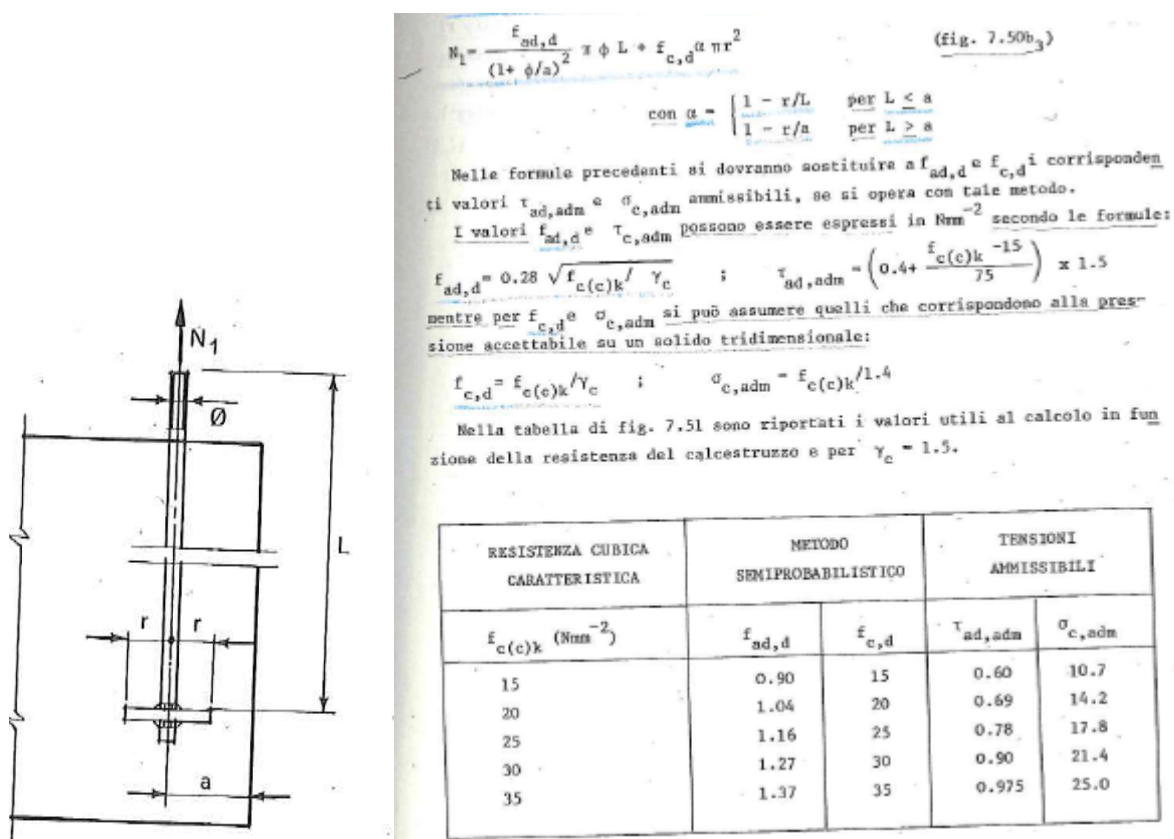 N₁
Ø
L
r r
a
N₁= f_ad,d / (1+ ϕ/a)² π ϕ L + f_c,d α πr² (fig. 7.50b₃)
con α = { 1 - r/L per L < a
1 - r/a per L > a
Nelle formule precedenti si dovranno sostituire a f_ad,d e f_c,d i corrisponden
ti valori τ_ad,adm e σ_c,adm ammissibili, se si opera con tale metodo.
I valori f_ad,d e τ_c,adm possono essere espressi in Nmm⁻² secondo le formule:
f_ad,d = 0.28 √(f_c(c)k / γ_c) ; τ_ad,adm = (0.4+ (f_c(c)k -15)/75) x 1.5
mentre per f_c,d e σ_c,adm si può assumere quelli che corrispondono alla pres-
sione accettabile su un solido tridimensionale:
f_c,d = f_c(c)k/γ_c ; σ_c,adm = f_c(c)k/1.4
Nella tabella di fig. 7.51 sono riportati i valori utili al calcolo in fun
zione della resistenza del calcestruzzo e per γ_c = 1.5.
RESISTENZA CUBICA METODO TENSIONI
CARATTERISTICA SEMIPROBABILISTICO AMMISSIBILI
f_c(c)k (Nmm⁻²) f_ad,d f_c,d τ_ad,adm σ_c,adm
15 0.90 15 0.60 10.7
20 1.04 20 0.69 14.2
25 1.16 25 0.78 17.8
30 1.27 30 0.90 21.4
35 1.37 35 0.975 25.0